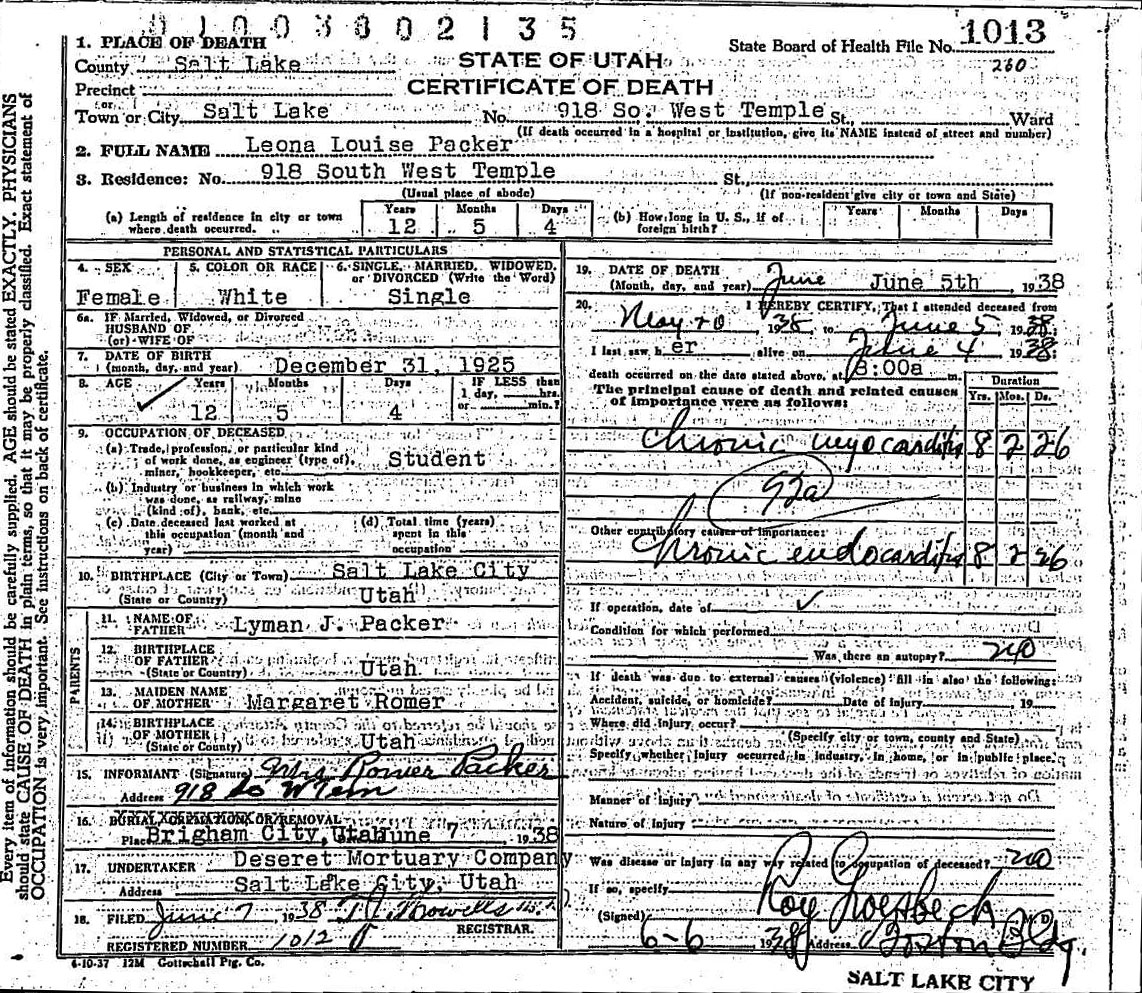 0 1 0 0 3 8 0 2 1 3 5
1. PLACE OF DEATH
County Salt Lake
STATE OF UTAH
State Board of Health File No. 1013
260
Precinct
CERTIFICATE OF DEATH
Town or City Salt Lake No. 918 So. West Temple St., Ward
(If death occurred in a hospital or institution, give its NAME instead of street and number)
2. FULL NAME Leona Louise Packer
3. Residence: No. 918 South West Temple St.,
(Usual place of abode) (If non-resident give city or town and State)
(a) Length of residence in city or town where death occurred. Years 12 Months 5 Days 4
(b) How long in U. S., if of foreign birth? Years Months Days
PERSONAL AND STATISTICAL PARTICULARS
4. SEX Female
5. COLOR OR RACE White
6. SINGLE, MARRIED, WIDOWED, or DIVORCED (Write the Word) Single
6a. IF Married, Widowed, or Divorced
HUSBAND OF
(or) WIFE OF
7. DATE OF BIRTH
(month, day, and year) December 31, 1925
8. AGE Years 12 Months 5 Days 4 IF LESS than 1 day, hrs. or min.?
9. OCCUPATION OF DECEASED
(a) Trade, profession, or particular kind
of work done, as engineer (type of), Student
miner, bookkeeper, etc.
(b) Industry or business in which work
was done, as railway, mine
(kind of), bank, etc.
(c) Date deceased last worked at
this occupation (month and
year)
(d) Total time (years)
spent in this
occupation
10. BIRTHPLACE (City or Town) Salt Lake City
(State or Country) Utah
PARENTS
11. NAME OF FATHER Lyman J. Packer
12. BIRTHPLACE OF FATHER (State or Country) Utah
13. MAIDEN NAME OF MOTHER Margaret Romer
14. BIRTHPLACE OF MOTHER (State or Country) Utah
15. INFORMANT (Signature) Mrs Romer Packer
Address 918 So W Tem
16. BURIAL, CREMATION OR REMOVAL
Place Brigham City, Utah June 7 1938
17. UNDERTAKER Deseret Mortuary Company
Address Salt Lake City, Utah
18. FILED June 7, 1938
REGISTRAR.
REGISTERED NUMBER 1012
4-10-37 12M Gottschall Ptg. Co.
19. DATE OF DEATH
(Month, day, and year) June June 5th, 1938
20. I HEREBY CERTIFY, That I attended deceased from
May 20, 1938 to June 5 1938;
I last saw her alive on June 4 1938;
death occurred on the date stated above, at 8:00a m.
The principal cause of death and related causes
of importance were as follows:
Duration
Yrs. Mos. Ds.
Chronic myocarditis 8 2 26
92a
Other contributory causes of importance:
Chronic endocarditis 8 2 26
If operation, date of
Condition for which performed
Was there an autopsy? no
If death was due to external causes (violence) fill in also the following:
Accident, suicide, or homicide? Date of injury , 19
Where did injury occur?
(Specify city or town, county and State)
Specify whether injury occurred in industry, in home, or in public place.
Manner of injury
Nature of injury
Was disease or injury in any way related to occupation of deceased? no
If so, specify
(Signed) Roy Groesbeck M. D.
6-6 1938 Address Boston Bldg.
SALT LAKE CITY
Every item of information should be carefully supplied. AGE should be stated EXACTLY. PHYSICIANS
should state CAUSE OF DEATH in plain terms, so that it may be properly classified. Exact statement of
OCCUPATION is very important. See instructions on back of certificate.